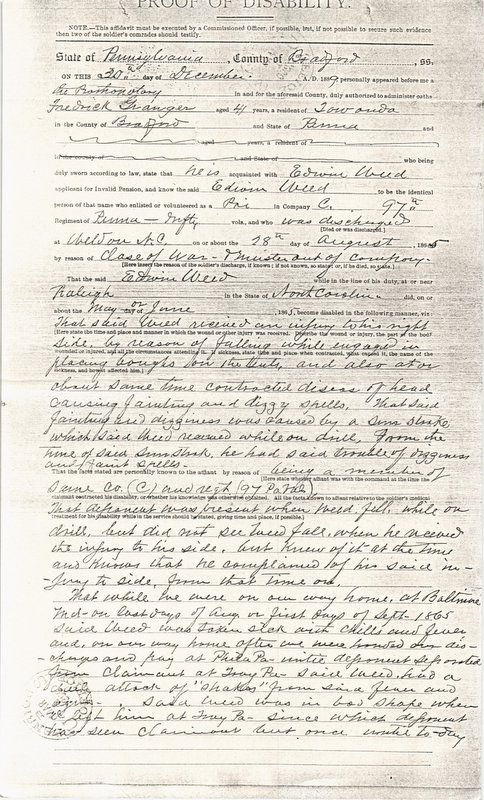 PROOF OF DISABILITY.
NOTE.—This affidavit must be executed by a Commissioned Officer, if possible, but, if not possible to secure such evidence
then two of the soldier's comrades should testify.
State of Pennsylvania, County of Bradford, ss.
ON THIS 20th day of December A. D. 18 personally appeared before me
the Prothonotary in and for the aforesaid County, duly authorized to administer oaths
Fredrick Granger aged 41 years, a resident of Towanda
in the County of Bradford and State of Penna and
aged years, a resident of
in the county of and State of who being
duly sworn according to law, state that he is acquainted with Edwin Weed
applicant for Invalid Pension, and know the said Edwin Weed to be the identical
person of that name who enlisted or volunteered as a Pri in Company C. 97th
Regiment of Penna — Infty vols, and who was discharged
[Died or was discharged.]
at Weldon N.C. on or about the 28th day of August, 1865
by reason of Close of War - & Muster out of company.
[Here insert the reason of the soldier's discharge, if known; if not known, so state; or if he died, so state.]
That the said Edwin Weed while in the line of his duty, at or near
Raleigh in the State of North Carolina did, on or
about the May or June day of 1865, become disabled in the following manner, viz:
That said Weed received an injury to his right
[Here state the time and place and manner in which the wound or other injury was received. Describe the wound or injury, the part of the body
side, by reason of falling while engaged in
wounded or injured, and all the circumstances attending it. If sickness, state time and place when contracted, what caused it, the name of the
placing boughs on the tents, and also at or
sickness, and how it affected him.]
about same time contracted diseas of head
causing fainting and dizzy spells. That said
fainting and dizziness was caused by a Sun Stroke
which said Weed received while on drill. From the
time of said Sunstrok, he had said trouble of dizziness
and faint spells.
That the facts stated are personally known to the affiant by reason of being a member of
[Here state whether affiant was with the command at the time the
same Co. (C) and regt (97 Pa Vols)
claimant contracted his disability, or whether his knowledge was otherwise obtained. All the facts known to affiant relative to the soldier's medical
That deponent was present when Weed fell, while on
treatment for his disability while in the service should be stated, giving time and place, if possible.]
drill, but did not see Weed fall, when he received
the injury to his side, but knew of it at the time
and knows that he complained of his said in-
jury to side, from that time on.
That while we were on our way home, at Baltimore
Md - on last days of Aug or first days of Sept - 1865
said Weed was taken sick with chills and fever
and, on our way home after we were handed our dis-
-charges and pay at Phila Pa - until deponent separated
from claimant at Troy Pa - said Weed had a
attack of "shakes" from said fever and
- said Weed was in bad shape when
we left him at Troy Pa - since which deponent
has seen claimant but once until to-day